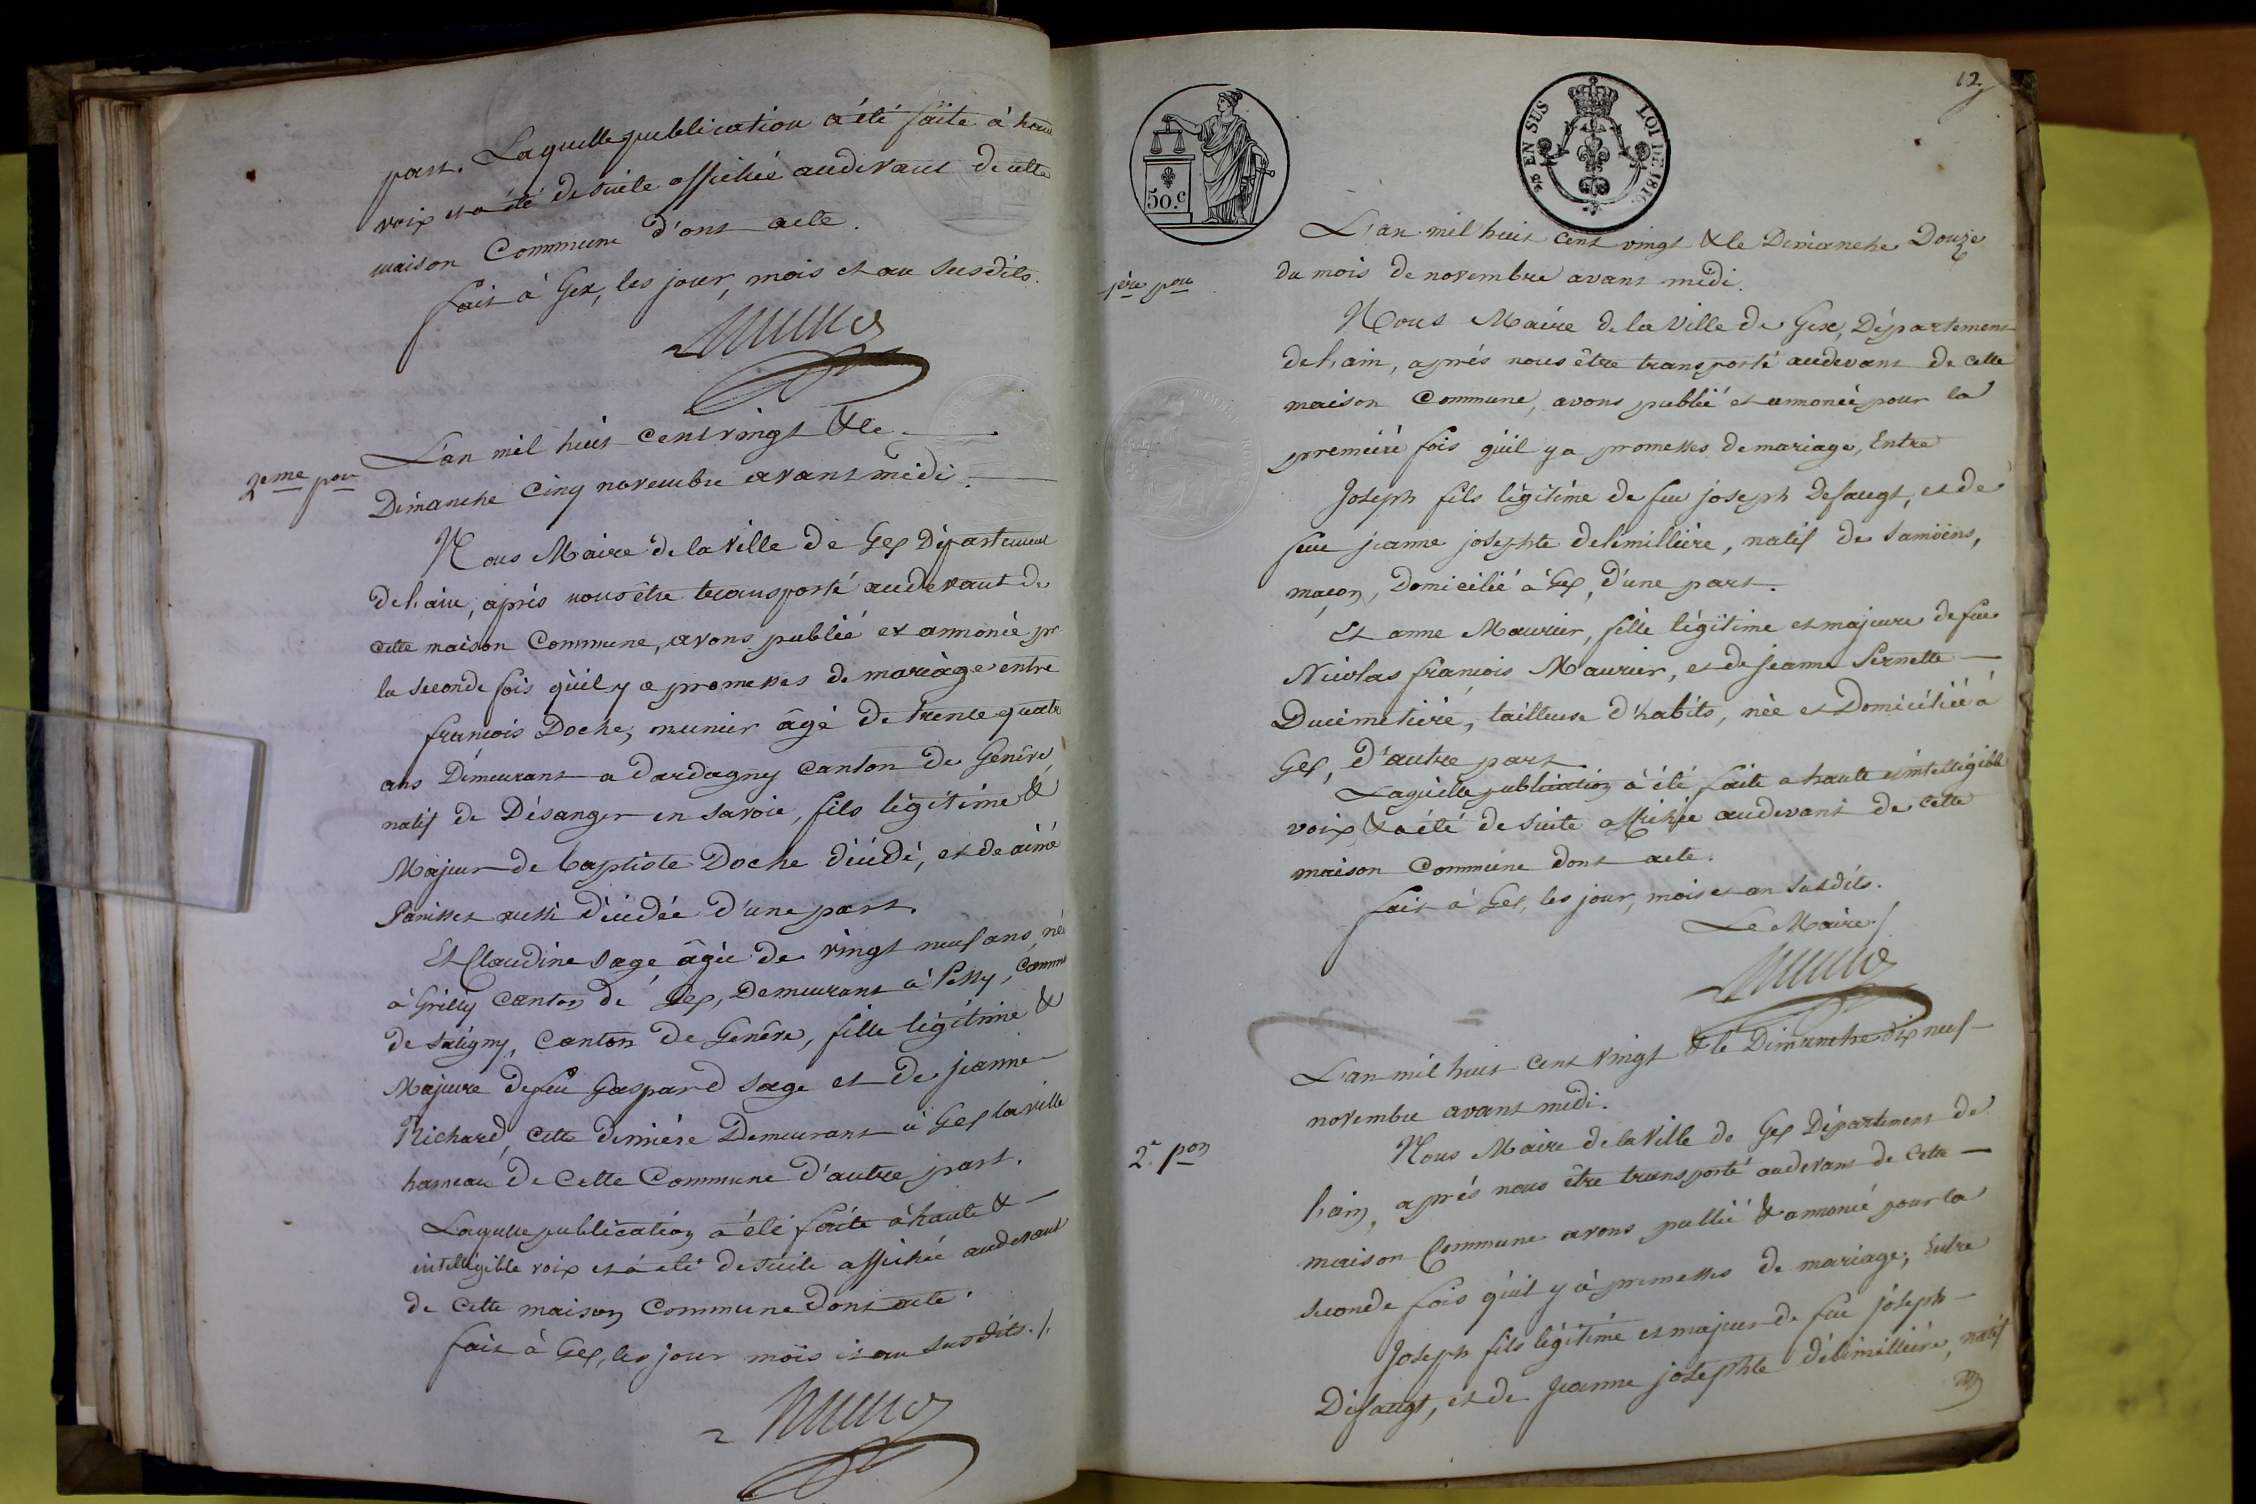 part. Laquelle publication a été faite à haute
voix et a été de suite affichée audevant de cette
maison Commune d'ont acte.
fait à Gex, les jour, mois et an susdits.
2eme pon
L'an mil huit cent vingt & le
Dimanche Cinq novembre avant midi.
Nous Maire de la Ville de Gex Département
de l'ain, après nous être transporté audevant de
cette maison Commune, avons publié et annoncé pr
la seconde fois qu'il y a promesses de mariage entre
françois Doche, meunier âgé de trente quatre
ans Demeurant a dardagny Canton de Genève,
natif de Désanger en Savoie, fils légitime &
Majeur de baptiste Doche décédé, et de aimé
Panisset aussi décédée d'une part.
Et Claudine Sage âgée de vingt neuf ans, née
à Grilly Canton de Gex, Demeurant à Pessy, Commune
de Satigny, Canton de Genève, fille légitime &
Majeure de feu Gaspard Sage et de jeanne
Richard, Cette dernière Demeurant à Gex la ville
hameau de Cette Commune d'autre part.
Laquelle publication a été faite à haute &
intelligible voix et à été de suite affichée audevant
de Cette maison Commune dont acte.
fait à Gex, les jour mois et an susdits./.
12
50.c
EN SUS
LOI DE 1816
1ère pon
L'an mil huit cent vingt & le Dimanche Douze
du mois de novembre avant midi.
Nous Maire de la Ville de Gex, Département
de l'ain, après nous être transporté audevant de cette
maison Commune, avons publié et annoncé pour la
premiére fois qu'il y a promesses de mariage, Entre
Joseph fils légitime de feu joseph Defaugt, et de
feue jeanne josephte delémillière, natif de Samoëns,
maçon, Domicilié à Gex, d'une part.
Et anne Maurier, fille légitime et majeure de feu
Nicolas françois Maurier, et de jeanne Pernette
Ducimetière, tailleuse d'habits, née et Domiciliée à
Gex, d'autre part.
Laquelle publication à été faite a haute et intelligible
voix, & a été de suite affichée audevant de cette
maison Commune dont acte.
fait à Gex, les jour, mois et an susdits.
Le Maire /
L'an mil huit cent vingt & le Dimanche dix neuf
novembre avant midi.
2e pon
Nous Maire de la Ville de Gex Département de
l'ain, après nous être transporté audevant de Cette
maison Commune avons publié & annoncé pour la
seconde fois qu'il y à promesses de mariage; Entre
Joseph fils légitime et majeur de feu joseph
Defaugt, et de Jeanne josephte délémillière, natif